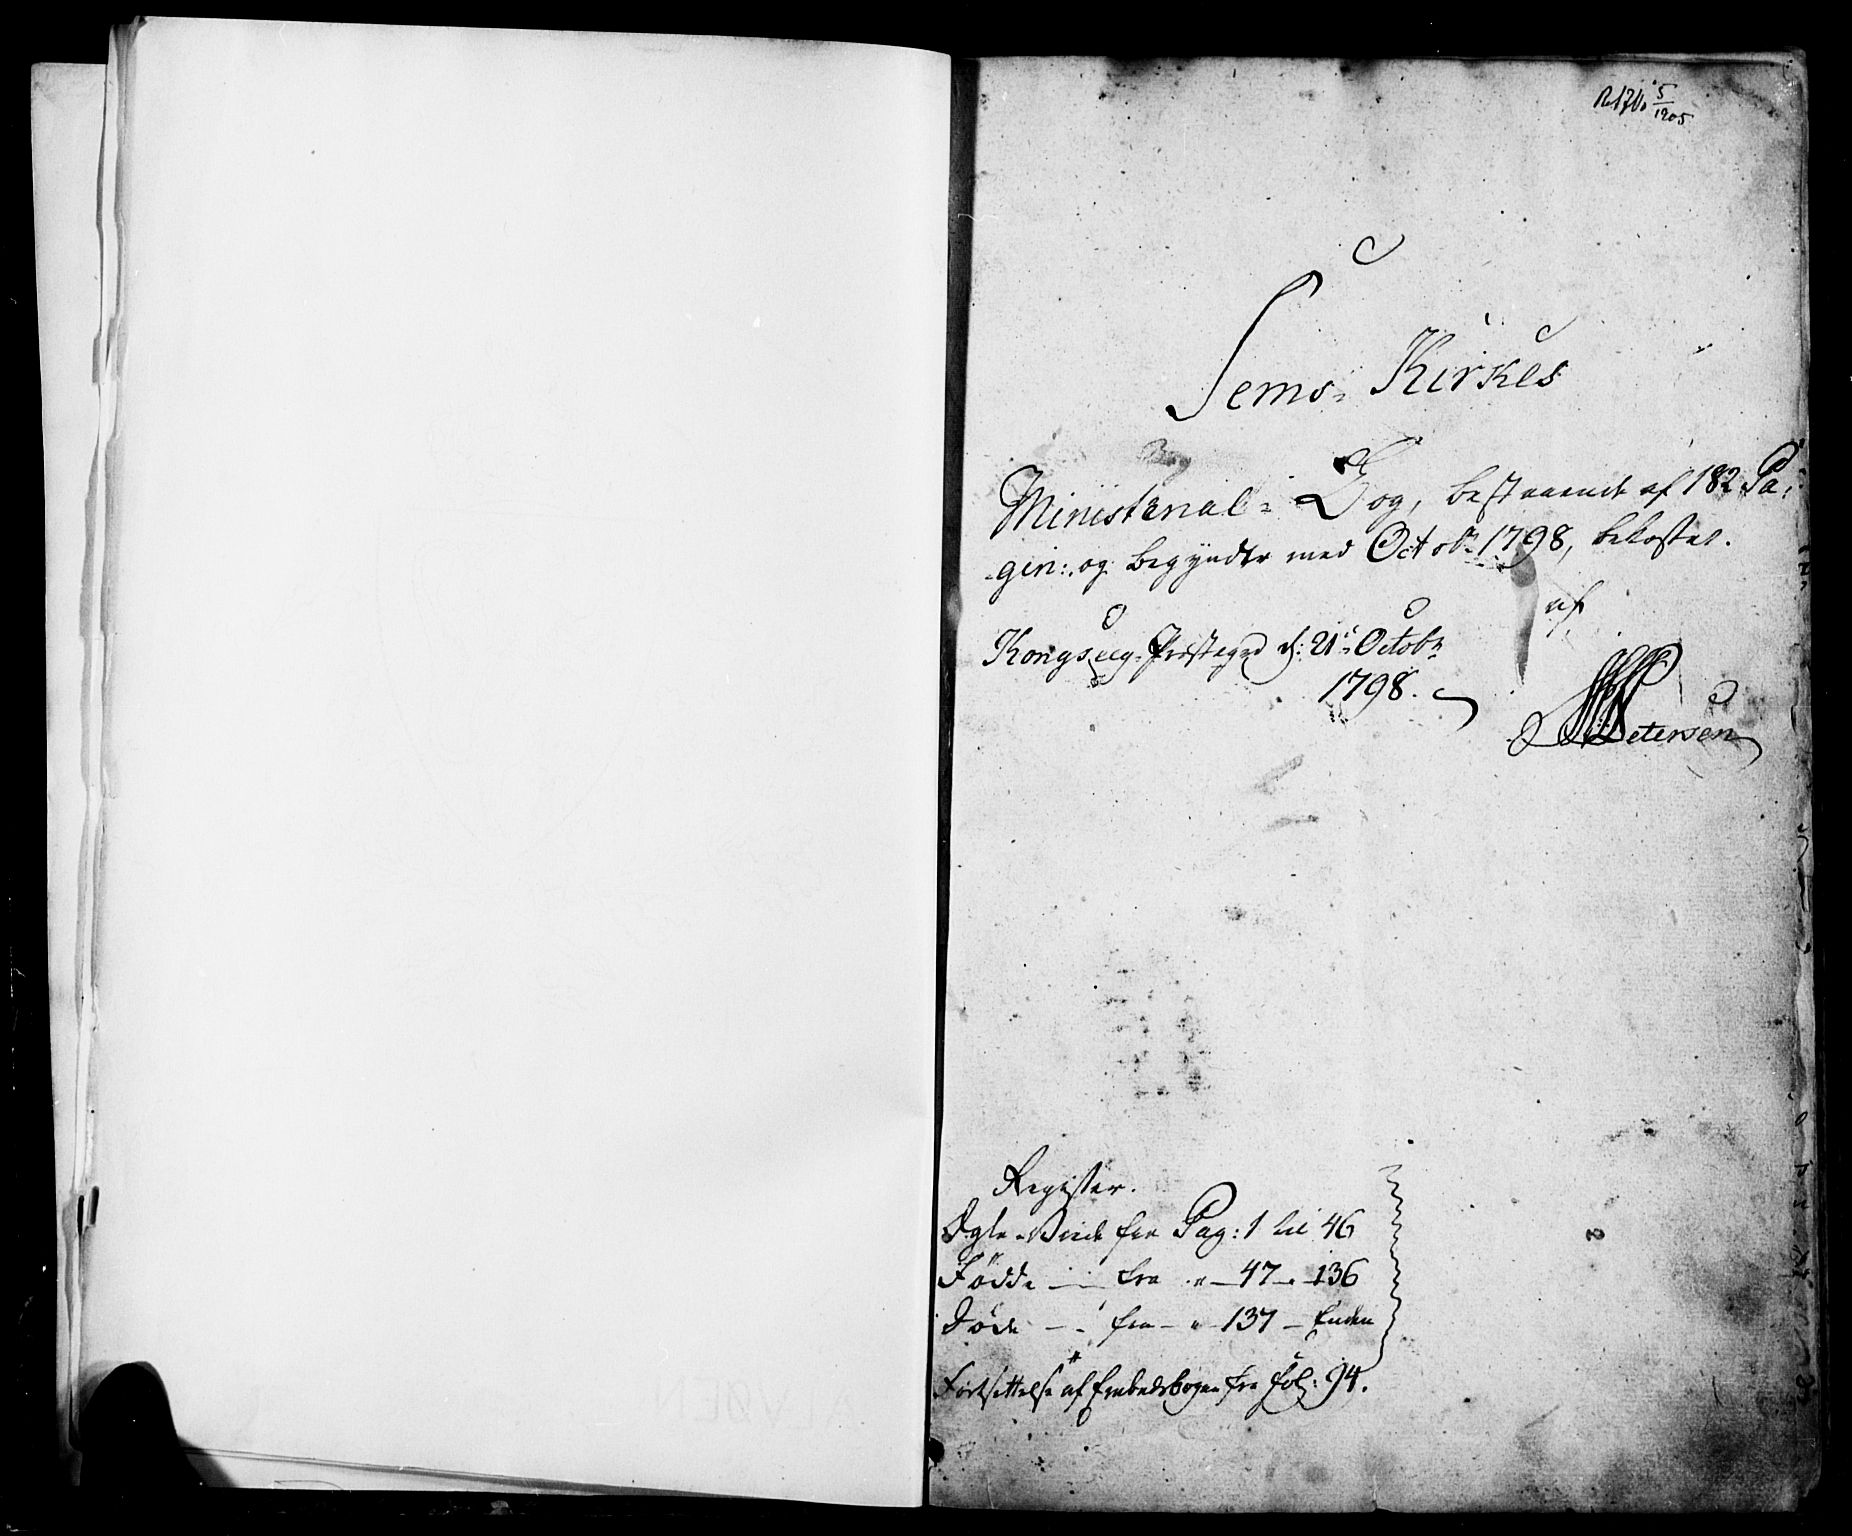 5
1905
Sems- Kirkes
Ministerial- Bog, bestaaende af 182 Pa-
gin: og begynder med Octobr 1798, bekostet
af
Præstegrd d: 21 Octobr
1798.
Petersen
Register.
Ægte-Viede fra Pag: 1 til 46
Fødde — fra " — 47 — 136
Døde — fra — " — 137 — Enden
Fortsettelse af Embedsbogen fra Fol: 94.